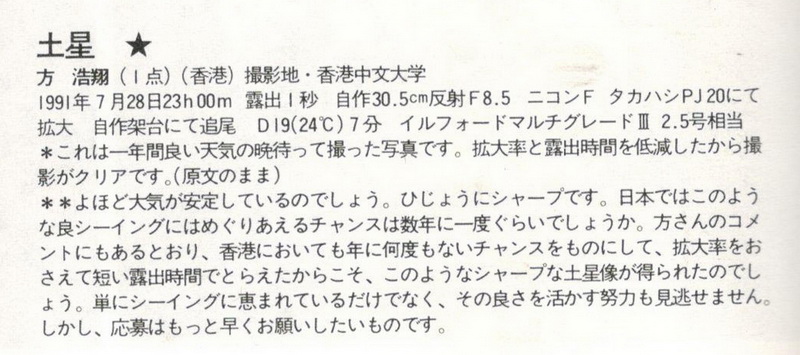 土星 ★
方 浩翔（1点）（香港）撮影地・香港中文大学
1991年7月28日23h00m 露出1秒 自作30.5cm反射F8.5 ニコンF タカハシPJ20にて
拡大 自作架台にて追尾 D19(24℃)7分 イルフォードマルチグレードⅢ 2.5号相当
＊これは一年間良い天気の晩待って撮った写真です。拡大率と露出時間を低減したから撮
影がクリアです。(原文のまま)
＊＊よほど大気が安定しているのでしょう。ひじょうにシャープです。日本ではこのよう
な良シーイングにはめぐりあえるチャンスは数年に一度ぐらいでしょうか。方さんのコメ
ントにもあるとおり、香港においても年に何度もないチャンスをものにして、拡大率をお
さえて短い露出時間でとらえたからこそ、このようなシャープな土星像が得られたのでし
ょう。単にシーイングに恵まれているだけでなく、その良さを活かす努力も見逃せません。
しかし、応募はもっと早くお願いしたいものです。